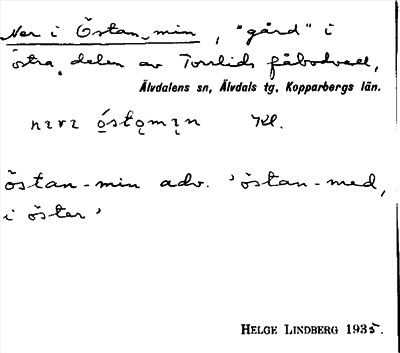 Ner i Östan-min, "gård" i
östra delen av Torrlids fäbodvall,
Älvdalens sn, Älvdals tg, Kopparbergs län.
Kl.
östan-min adv. 'östan-med,
i öster'
HELGE LINDBERG 1935.